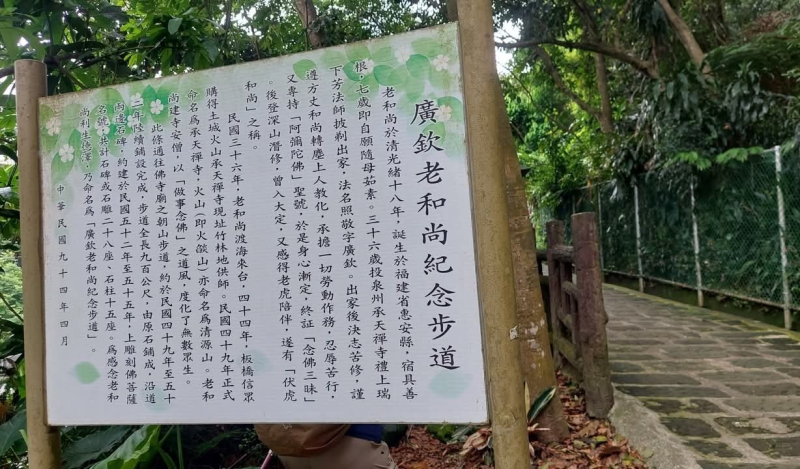 廣欽老和尚紀念步道
老和尚於清光緒十八年，誕生於福建省惠安縣，宿具善
根，七歲即自願隨母茹素。三十六歲投泉州承天禪寺禮上瑞
下芳法師披剃出家，法名照敬字廣欽。出家後決志苦修，謹
遵方丈和尚轉塵上人教化，承擔一切勞動作務，忍辱苦行，
又專持「阿彌陀佛」聖號，於是身心漸定，終証「念佛三昧」
。後登深山潛修，曾入大定，又感得老虎陪伴，遂有「伏虎
和尚」之稱。
民國三十六年，老和尚渡海來台，四十四年，板橋信眾
購得土城火山承天禪寺現址竹林地供師。民國四十九年正式
命名為承天禪寺，火山(即火燄山)亦命名為清源山。老和
尚建寺安僧，以「做事念佛」之道風，度化了無數眾生。
此條通往佛寺廟之朝山步道，約於民國四十九年至五十
二年陸續鋪設完成，步道全長九百公尺，由原石鋪成，沿道
兩邊石碑，約建於民國五十二年至五十五年，上雕刻佛菩薩
名號，共計石碑或石雕二十八座、石柱十五座。為感念老和
尚利生德澤，乃命名為「廣欽老和尚紀念步道」。
中華民國九十四年四月